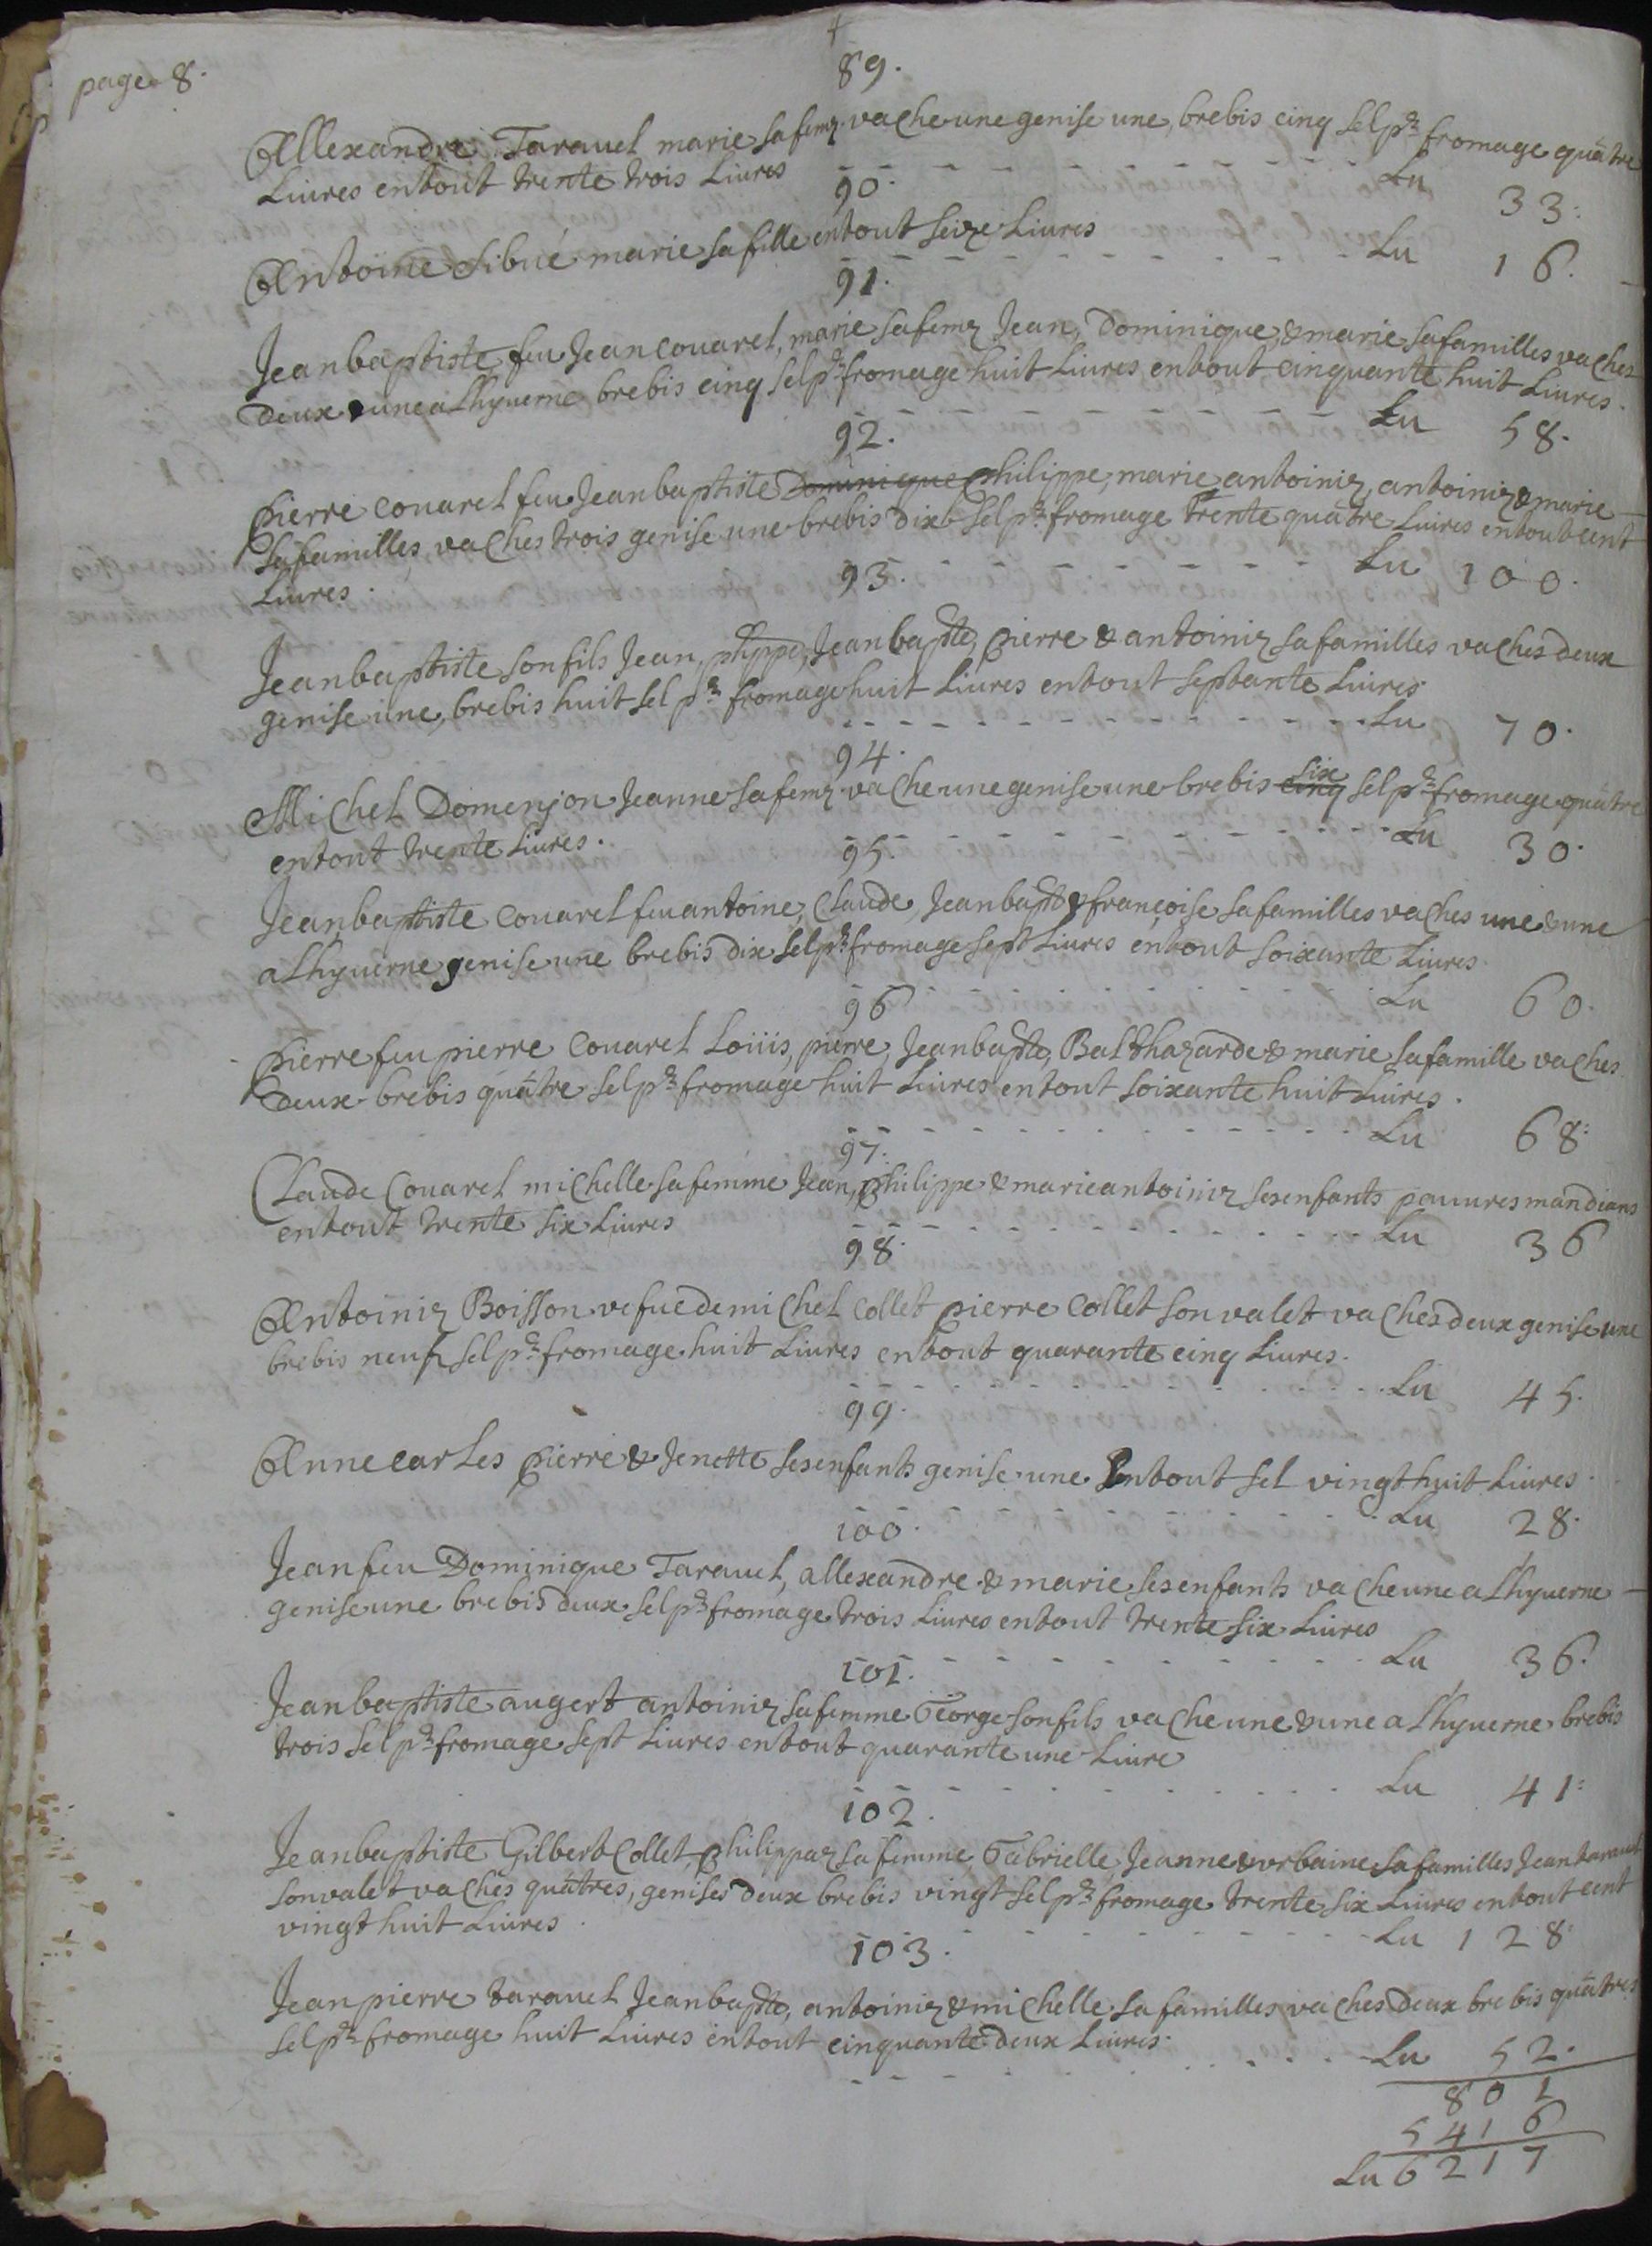 page 8.
89.
Allexandre Taravel marie sa femᵉ vache une genise une, brebis cinq sel pʳ fromage quatre
Livres en tout trente trois Livres - - - Lu 33:
90.
Antoine Sibué marie sa fille en tout seize Livres - - - Lu 16.
91.
Jean baptiste feu Jean Couarel, marie sa femᵉ Jean, Dominique, & marie sa familles vaches
deux & une a Lhyuerne brebis cinq sel pʳ fromage huit Livres en tout cinquante huit Livres.
Lu 58.
92.
Pierre Couarel feu Jean baptiste Dominique Philippe, marie antoinᵉ, antoinᵉ & marie
sa familles, vaches trois genise une brebis dix sel pʳ fromage trente quatre Livres en tout cent
Livres. - - - Lu 100.
93.
Jean baptiste son fils Jean, phppe, Jean bapte, Pierre & antoinᵉ sa familles vaches deux
genise une, brebis huit sel pʳ fromage huit Livres en tout septante Livres
- - - Lu 70.
94.
Michel Domenjon Jeanne sa femᵉ vache une genise une brebis cinq six sel pʳ fromage quatre
en tout trente Livres. - - - Lu 30.
95.
Jean baptiste Couarel feu antoine, Claude, Jean bapte & françoise sa familles vaches une & une
a Lhyuerne genise une brebis dix sel pʳ fromage sept Livres en tout soixante Livres
- - - Lu 60.
96
Pierre feu pierre Couarel Loüis, pierre, Jean bapte, Balthazarde & marie sa famille vaches
Deux brebis quatre sel pʳ fromage huit Livres en tout soixante huit Livres.
- - - Lu 68:
97.
Claude Couarel michelle sa femme Jean, Philippe & marie antoinᵉ ses enfants pauures mandians
en tout trente six Livres - - - Lu 36
98.
Antoinᵉ Boisson vefue de michel Collet Pierre Collet son valet vaches deux genise une
brebis neuf sel pʳ fromage huit Livres en tout quarante cinq Livres.
- - - Lu 45.
99.
Anne Carles Pierre & Jenette ses enfants genise une En tout sel vingt huit Livres.
- - - Lu 28.
100.
Jean feu Dominique Taravel, allexandre & marie ses enfants vache une a Lhyuerne
genise une brebis deux sel pʳ fromage trois Livres en tout trente six Livres
- - - Lu 36.
101.
Jean baptiste augert antoinᵉ sa femme George son fils vache une & une a Lhyuerne brebis
trois sel pʳ fromage sept Livres en tout quarante une Livre
- - - Lu 41:
102.
Jean baptiste Gilbert Collet, Philippaᵉ sa femme, Gabrielle, Jeanne & vrbaine sa familles Jean taravel
son valet vaches quatres, genises deux brebis vingt sel pʳ fromage trente six Livres en tout cent
vingt huit Livres. - - - Lu 128.
103.
Jean pierre taravel Jean bapte, antoinᵉ & michelle sa familles vaches deux brebis quatres
sel pʳ fromage huit Livres en tout cinquante deux Livres.
- - - Lu 52.
801
5416
Lu 6217